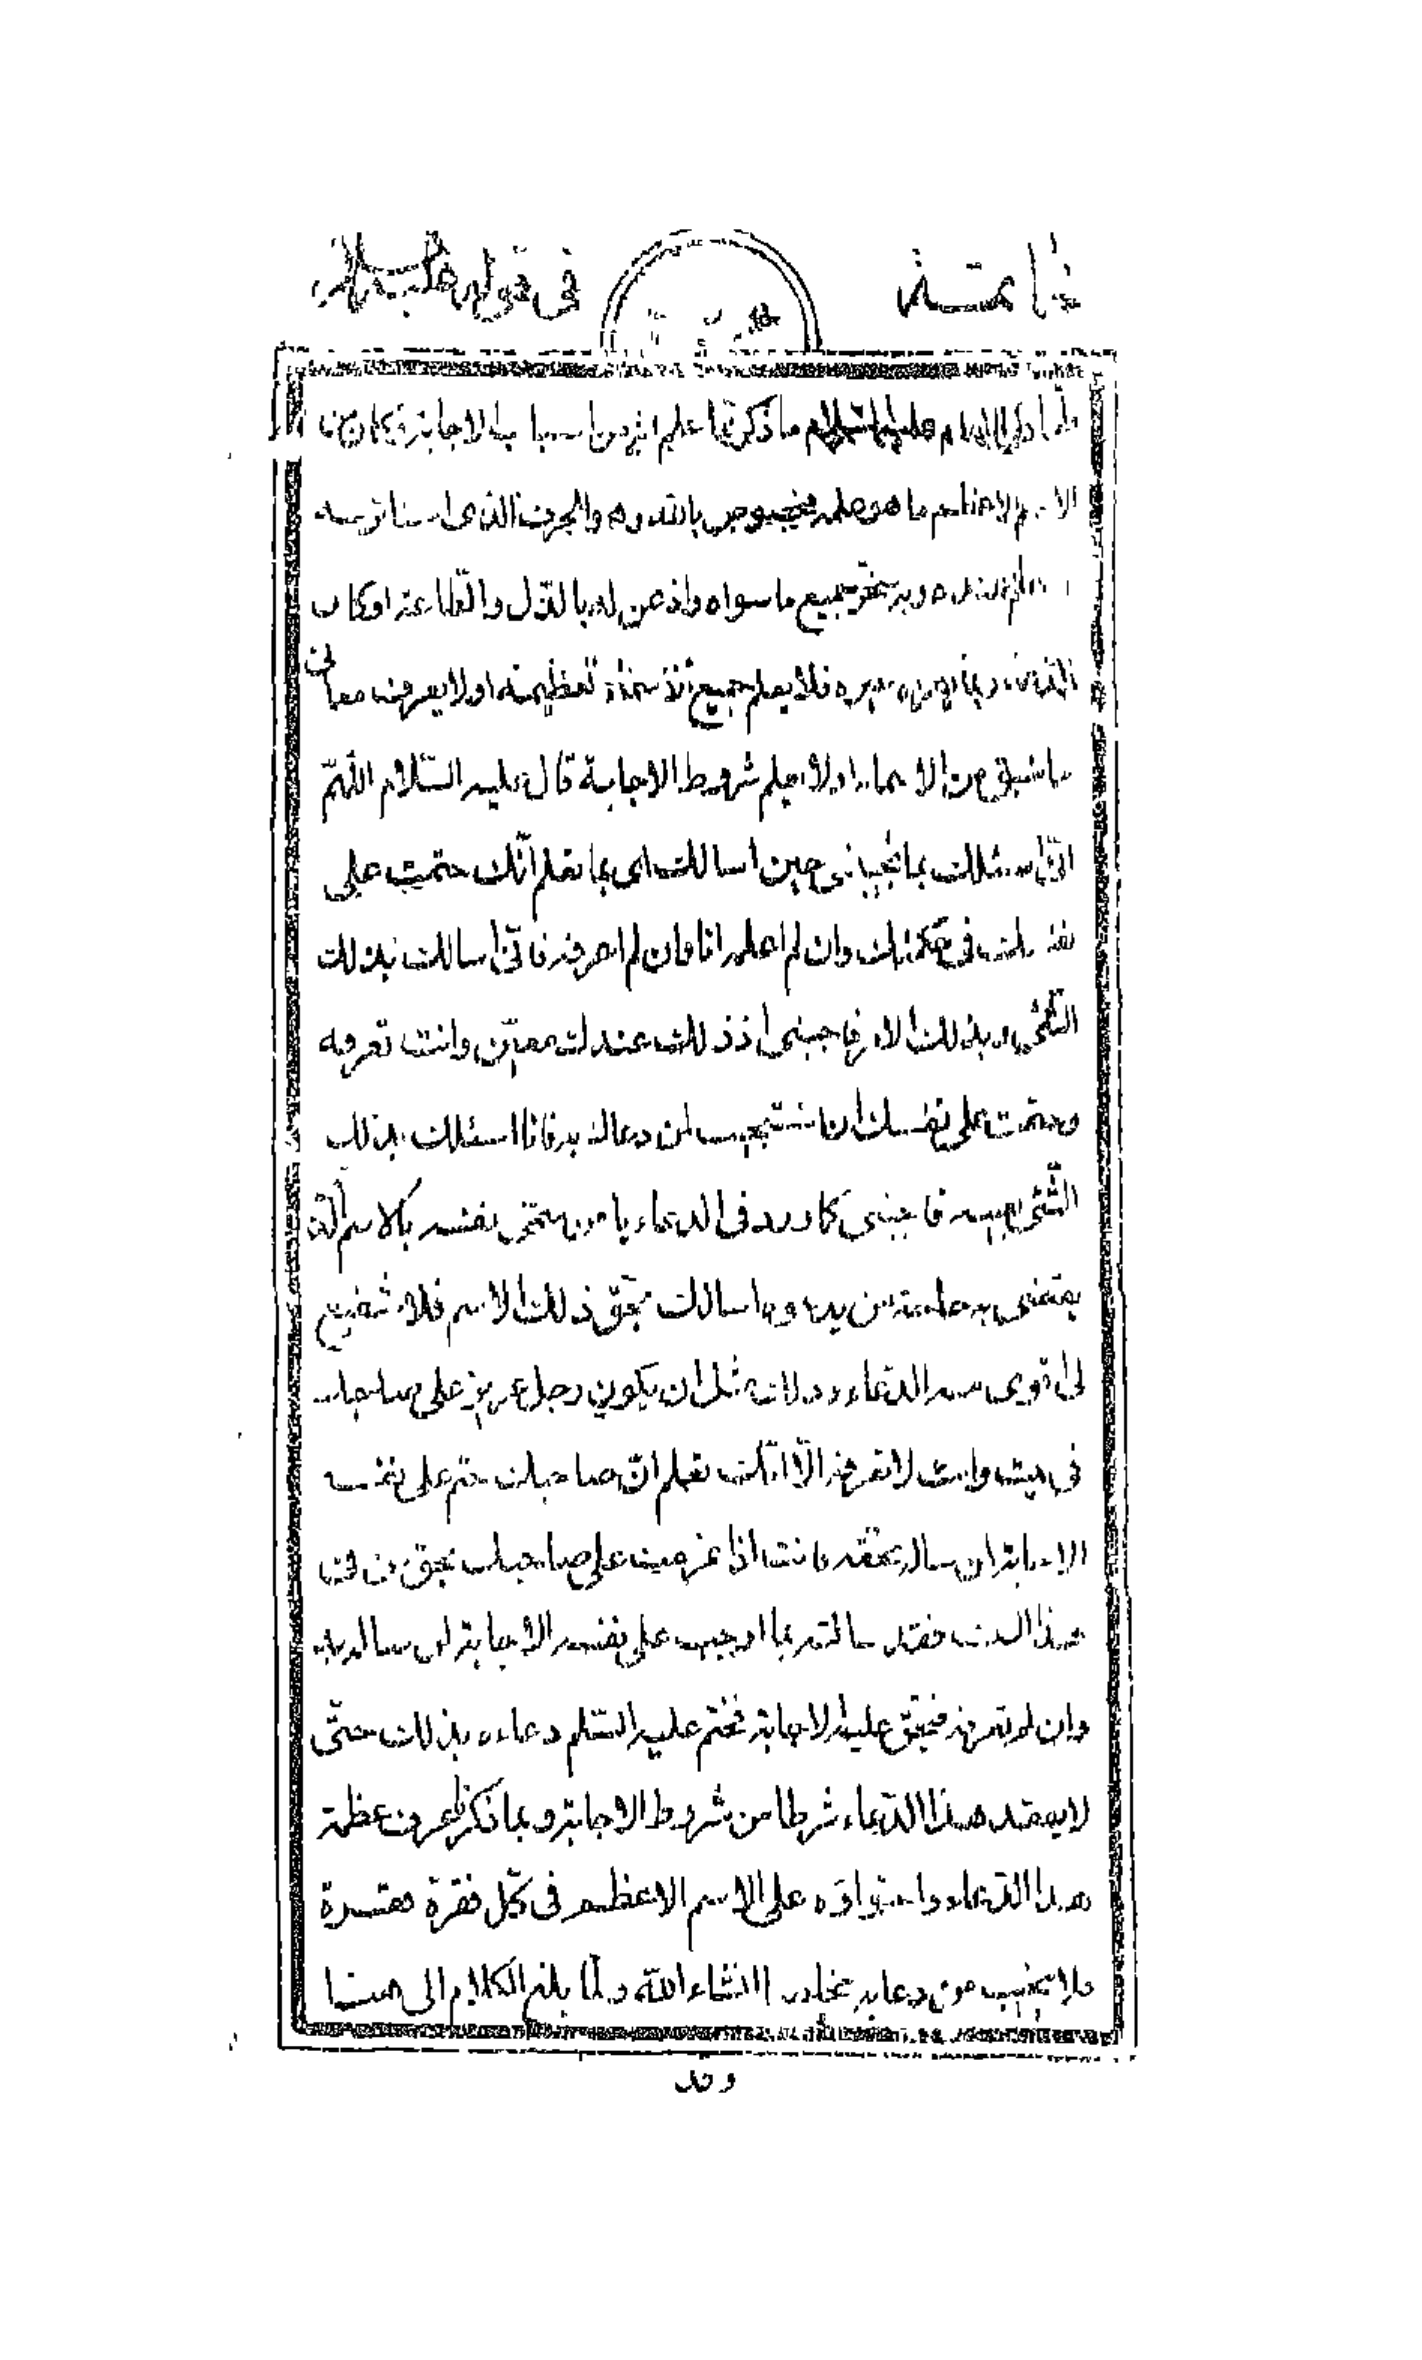 خاتمة
في قوله عليه السلام
ولما ذكر الامام عليه السلام ما ذكر مما علم انه من اسباب الاجابة وكان من
الاسم الاعظم ما هو علمه مخصوص بالله وهو الحرف الذى استاثر به
وبه سخر جميع ما سواه واذعن له بالذل والطاعة او كان
فلا يعلم جميع انحاء تعظيمه او لا يعرف معانى
ما سبق من الاسماء او لا يعلم شروط الاجابة قال عليه السّلام اللهمّ
انّى اسئلك بما تجيبنى حين اسالك اى بما تعلم انّك حتمت على
نفسك فى وان لم اعلمه انا وان لم اعرفه فانّى اسالك بذلك
الشّئ وبذلك الامر فاجبنى اذ ذلك عندك معيّن وانت تعرفه
وحتمت على نفسك ان تستجيب لمن دعاك به فانا اسئلك بذلك
الشّئ فاجبنى كما ورد فى الدعاء يا من سمّى نفسه بالاسم الّذى
يقتضى به حاجة من يدعوه اسالك بحقّ ذلك الاسم فلا شفيع
لى اقوى منه الدّعاء وذلك مثل ان يكون رجل عزيز على صاحبك
فى بيت وانت لا تعرفه الّا انّك تعلم انّ صاحبك حتم على نفسه
الاجابة لمن ساله بحقه فانت اذا عزمت على صاحبك بحق من فى
هذا البيت فقد سالته بما اوجب على نفسه الاجابة لمن ساله به
وان لم تعرفه فيحق عليه الاجابة فختم عليه السّلم دعاءه بذلك حتّى
لا يفقد هذا الدّعاء شرطا من شروط الاجابة وبما ذكر ظهر ف عظمة
هذا الدّعاء واحتواؤه على الاسم الاعظم فى كلّ فقرة فقرة
ولا يخيب من دعا به مخلصا انشاء اللّه ولمّا بلغ الكلام الى هنا
وقد